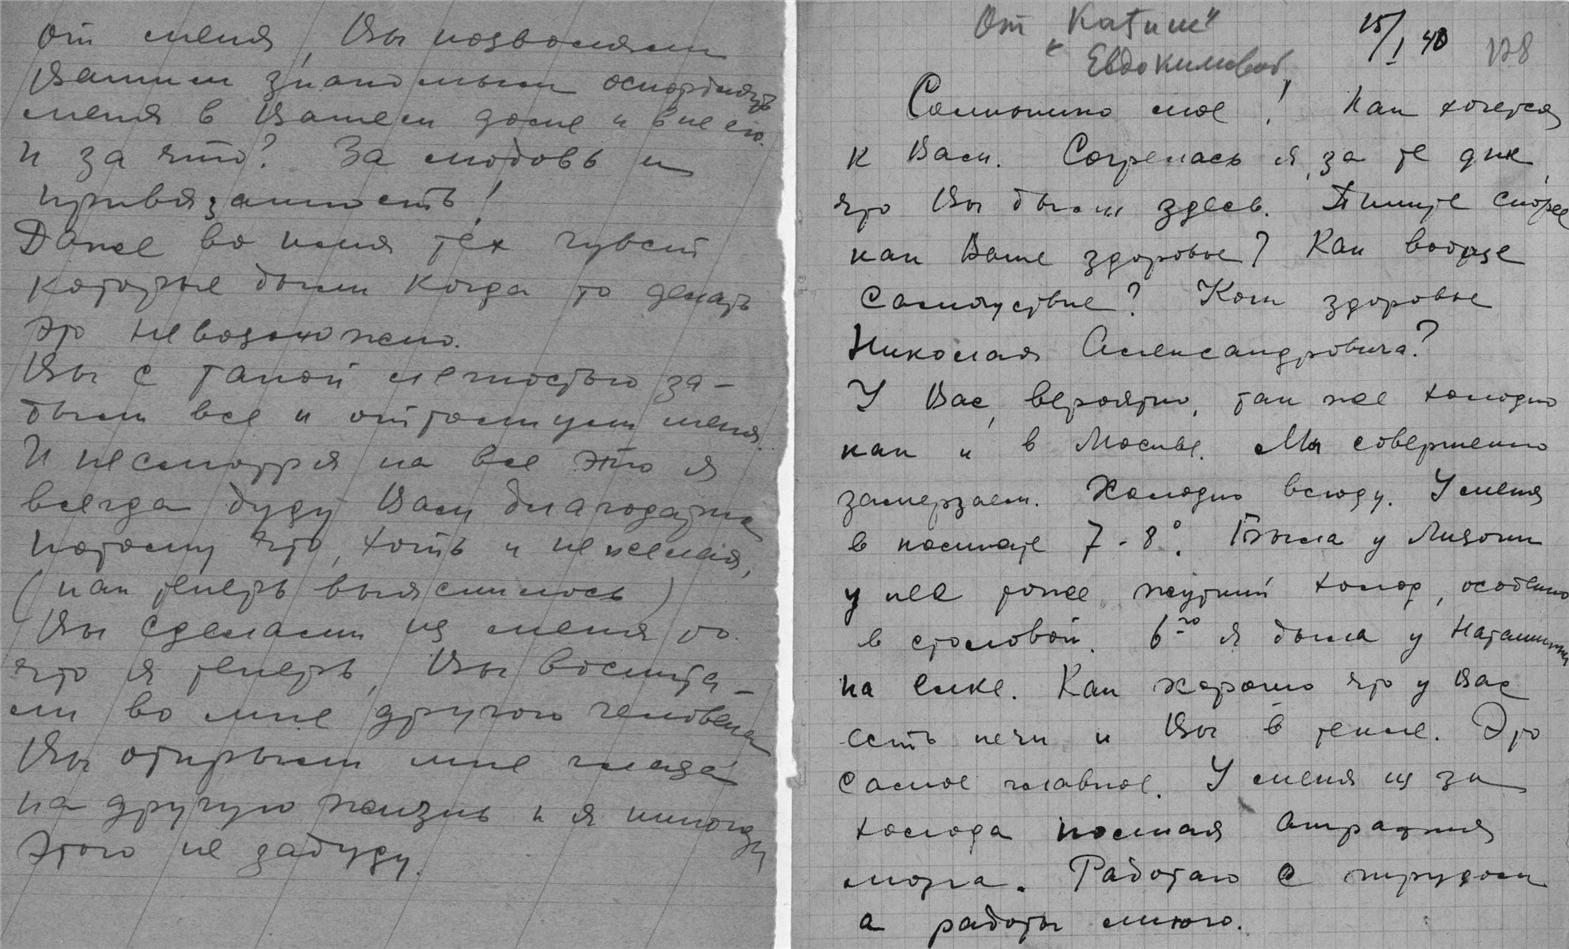 от меня, Вы позволяли
Вашим знакомым оскорблять
меня в Вашем доме и вне его.
И за что? За любовь и
привязанность!
Даже во имя тех чувств
которые были когда то делать
это невозможно.
Вы с такой легкостью за-
были все и оттолкнули меня.
И несмотря на все это я
всегда буду Вам благодарна
потому что, хоть и не желая,
(как теперь выяснилось)
Вы сделали из меня то
что я теперь, Вы воспита-
ли во мне другого человека
Вы открыли мне глаза
на другую жизнь и я никогда
этого не забуду.
От "Катиш"
Евдокимовой
15/I 40
128
Солнышко мое! Как хочется
к Вам. Согрелась я за те дни,
что Вы были здесь. Пишите скорее
как Ваше здоровье? Как вообще
самочувствие? Как здоровье
Николая Александровича?
У Вас, вероятно, так же холодно
как и в Москве. Мы совершенно
замерзаем. Холодно всюду. У меня
в комнате 7-8°. Была у
у нее тоже жуткий холод, особенно
в столовой. 6го я была у Наташи
на елке. Как хорошо что у Вас
есть печи и Вы в тепле. Это
самое главное. У меня из за
холода полная атрофия
мозга. Работаю с трудом
а работы много.